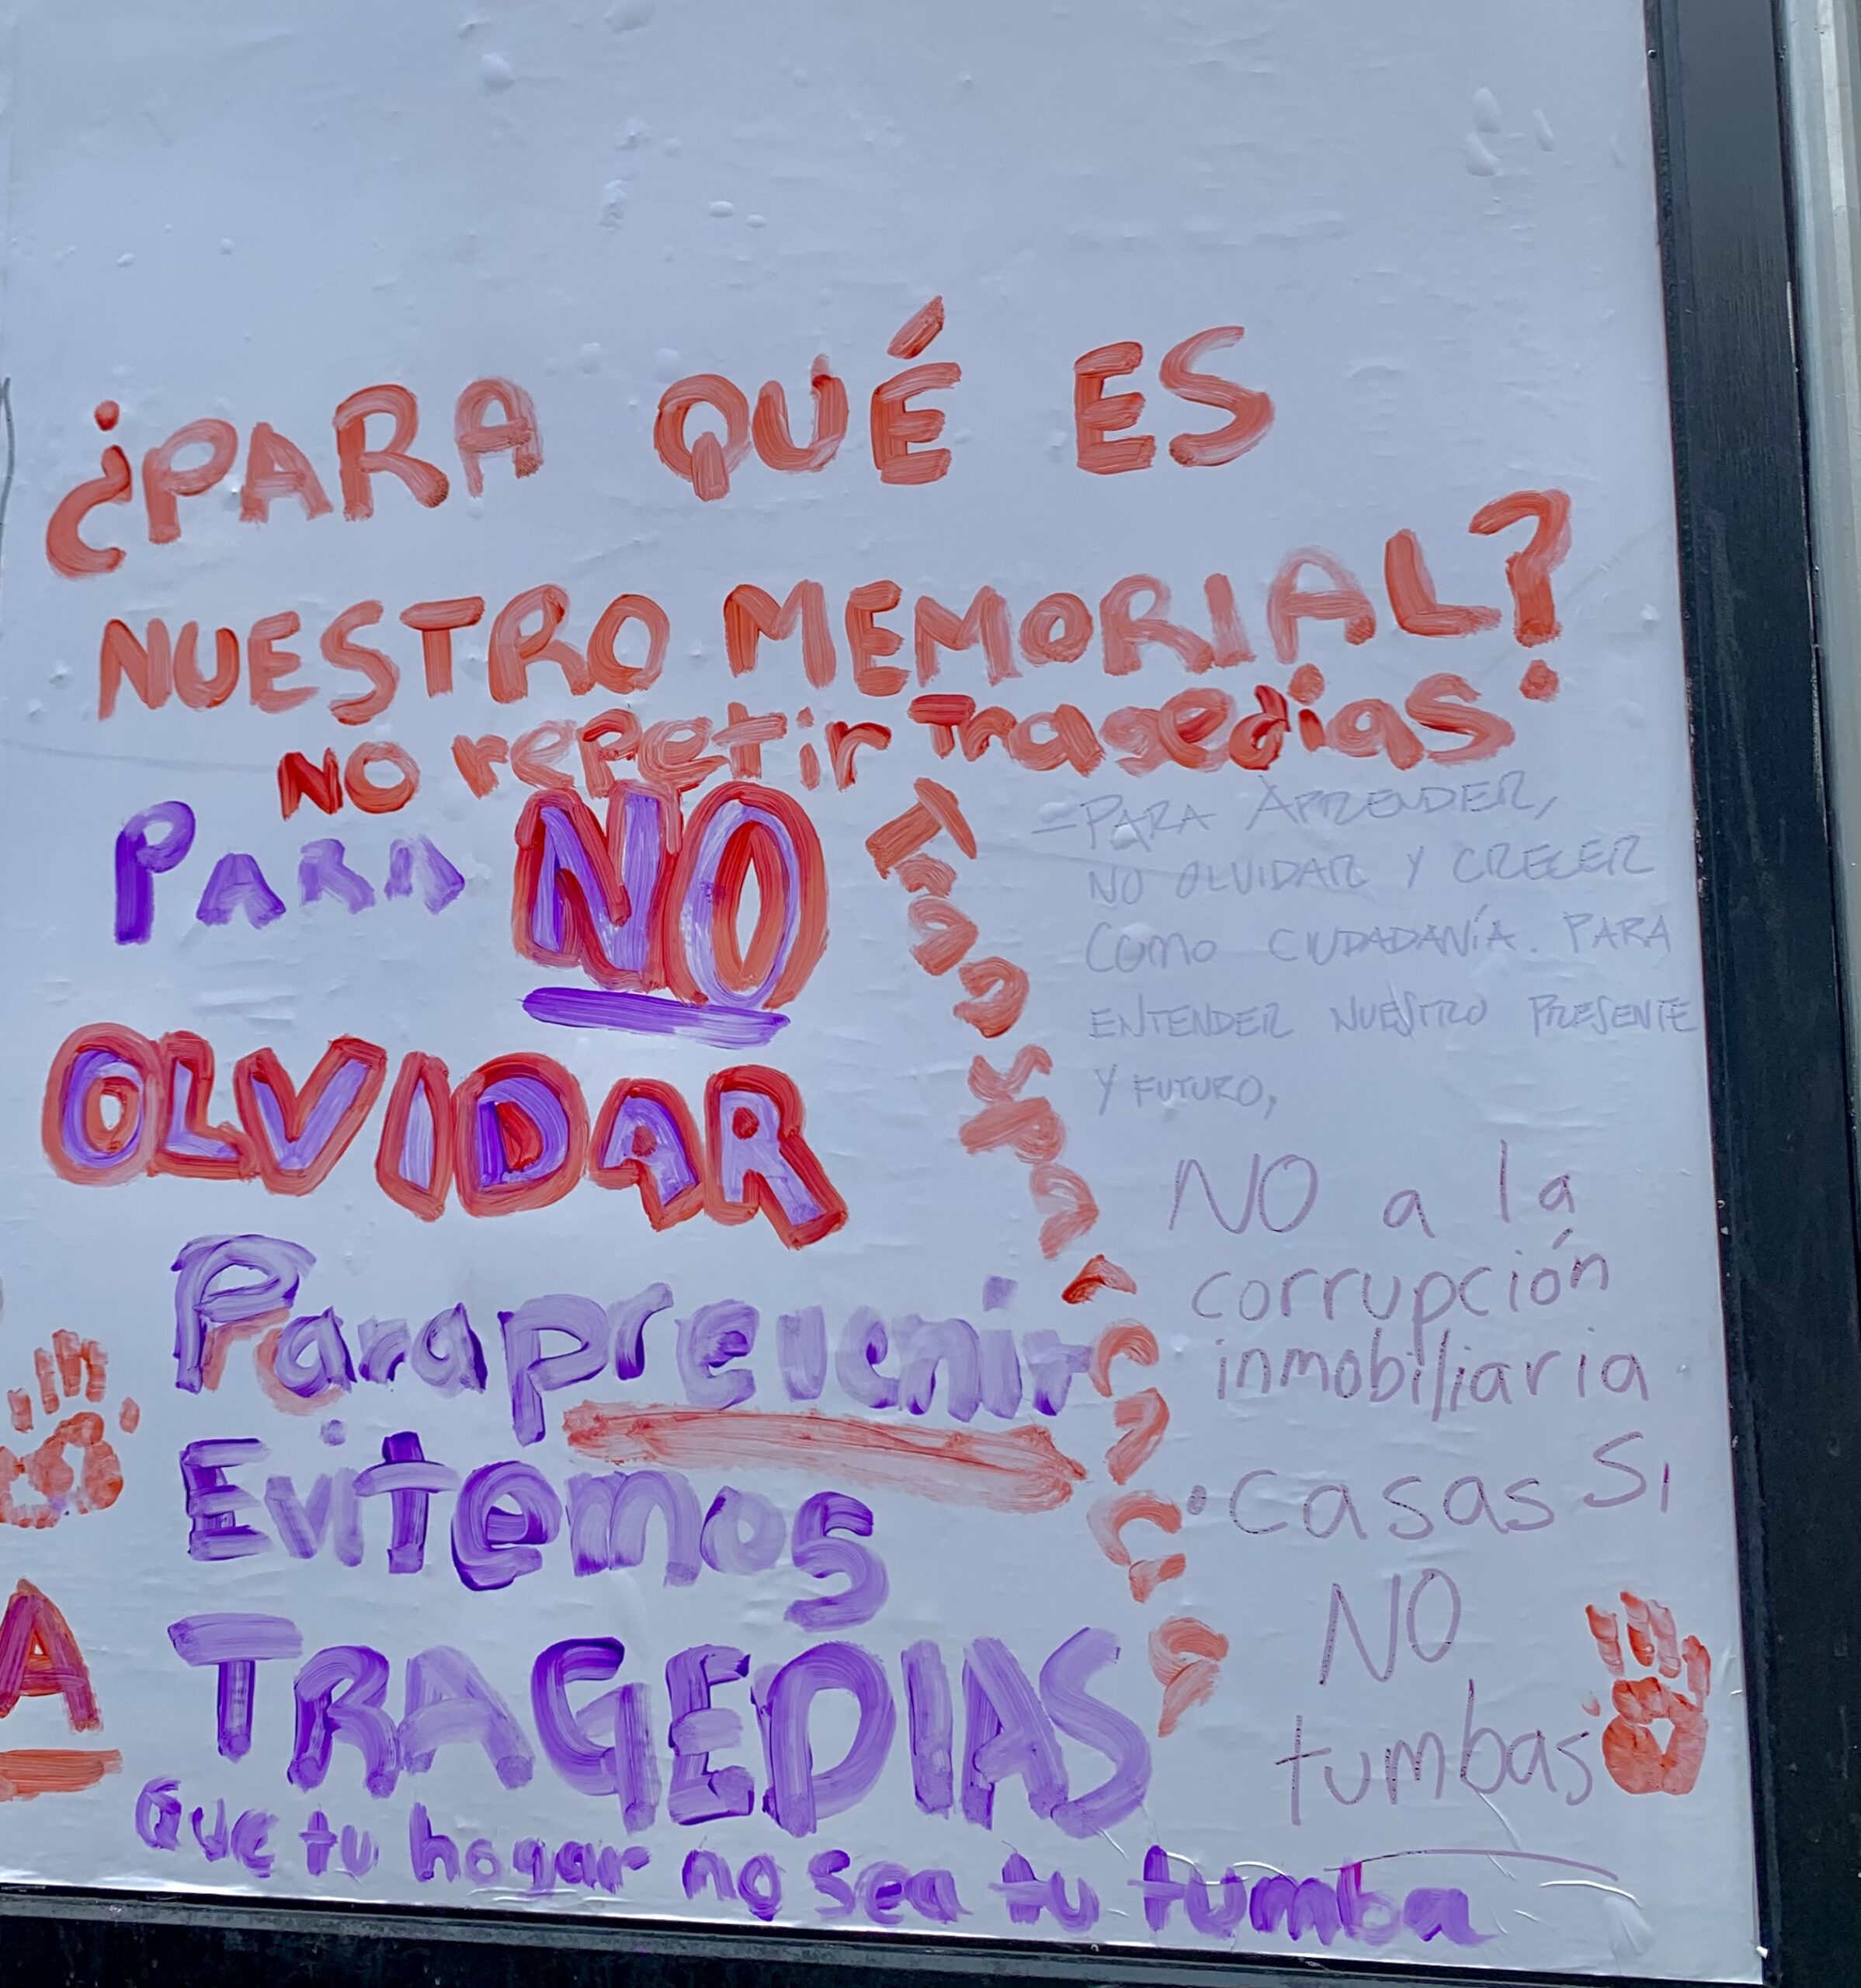 ¿PARA QUÉ ES
NUESTRO MEMORIAL?
NO repetir Tragedias
PARA NO
OLVIDAR
Para prevenir
Evitemos
TRAGEDIAS
Que tu hogar no sea tu tumba
Transparencia
-PARA APRENDER,
NO OLVIDAR Y CRECER
COMO CIUDADANÍA. PARA
ENTENDER NUESTRO PRESENTE
Y FUTURO,
NO a la
corrupción
inmobiliaria
•Casas Si
NO
tumbas
A